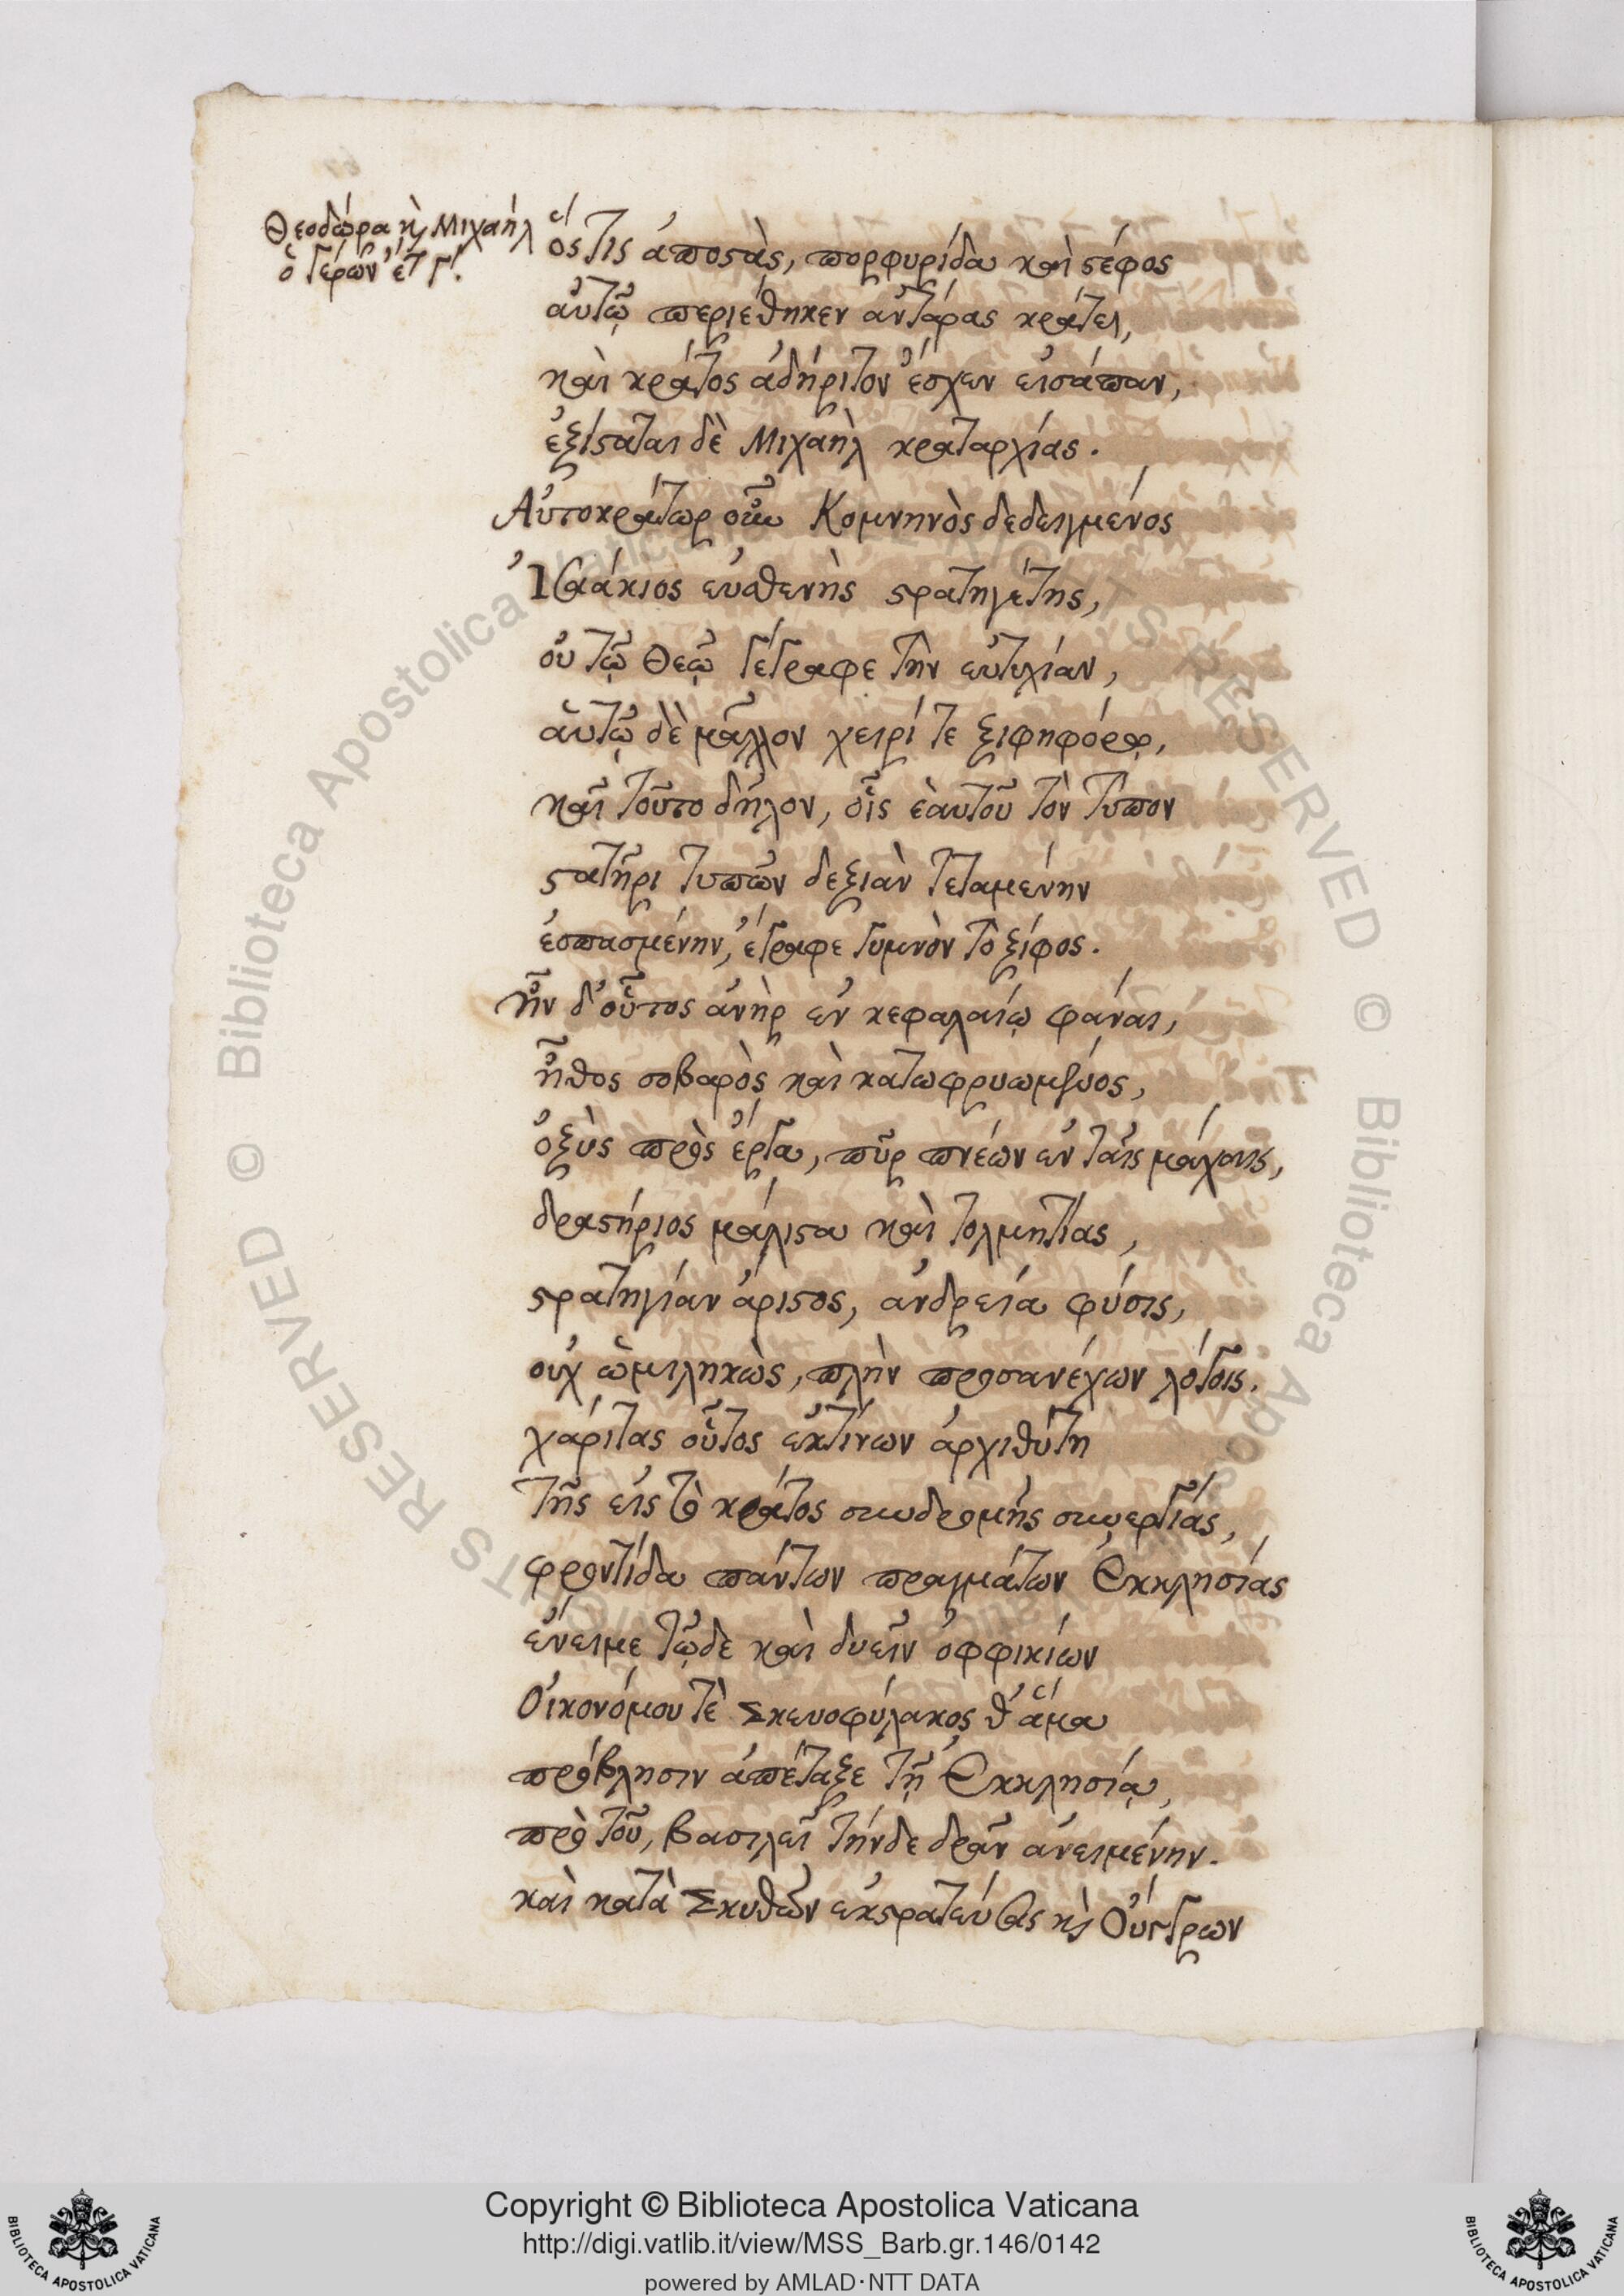 Θεοδώρα καὶ Μιχαὴλ
ὁ Γέρων ἔτ. γ΄.
ὅς τις ἀποστὰς, πορφυρίδα καὶ στέφος
αὐτῷ περιέθηκεν ἀντάρας κράτει,
καὶ κράτος ἀδήριτον ἔσχεν εἰσάπαν,
ἐξίσταται δὲ Μιχαὴλ κραταρχίας.
Αὐτοκράτωρ οὖν Κομνηνὸς δεδειγμένος
Ἰσαάκιος εὐσθενὴς στρατηγέτης,
οὐ τῷ Θεῷ γέγραφε τὴν εὐτυχίαν,
αὐτῷ δὲ μᾶλλον χειρί τε ξιφηφόρῳ,
καὶ τοῦτο δῆλον, οἷς ἑαυτοῦ τὸν τύπον
στατῆρι τυπῶν δεξιὰν τεταμένην
ἐσπασμένην, ἔγραφε γυμνὸν τὸ ξίφος.
Ἦν δ' οὗτος ἀνὴρ ἐν κεφαλαίῳ φάναι,
ἦθος σοβαρὸς καὶ κατωφρυωμένος,
ὀξὺς πρὸς ἔργα, πῦρ πνέων ἐν ταῖς μάχαις,
δραστήριος μάλιστα καὶ τολμητίας,
στρατηγίαν ἄριστος, ἀνδρεία φύσις,
οὐχ ὡμιληκὼς, πλὴν προσανέχων λόγοις.
χάριτας οὗτος ἐκτίνων ἀρχιθύτῃ
τῆς εἰς τὸ κράτος συνδρομῆς συνεργίας,
φροντίδα πάντων πραγμάτων Ἐκκλησίας
ἔνειμε τῷδε καὶ δυεῖν ὀφφικίων
Οἰκονόμου τὲ Σκευοφύλακος θ' ἅμα
πρόβλησιν ἀπέταξε τῇ Ἐκκλησίᾳ,
πρὸ τοῦ, βασιλεῖ τήνδε δρᾶν ἀνειμένην.
καὶ κατὰ Σκυθῶν ἐκστρατεύσας καὶ Οὔγγρων
Copyright © Biblioteca Apostolica Vaticana
http://digi.vatlib.it/view/MSS_Barb.gr.146/0142
powered by AMLAD·NTT DATA